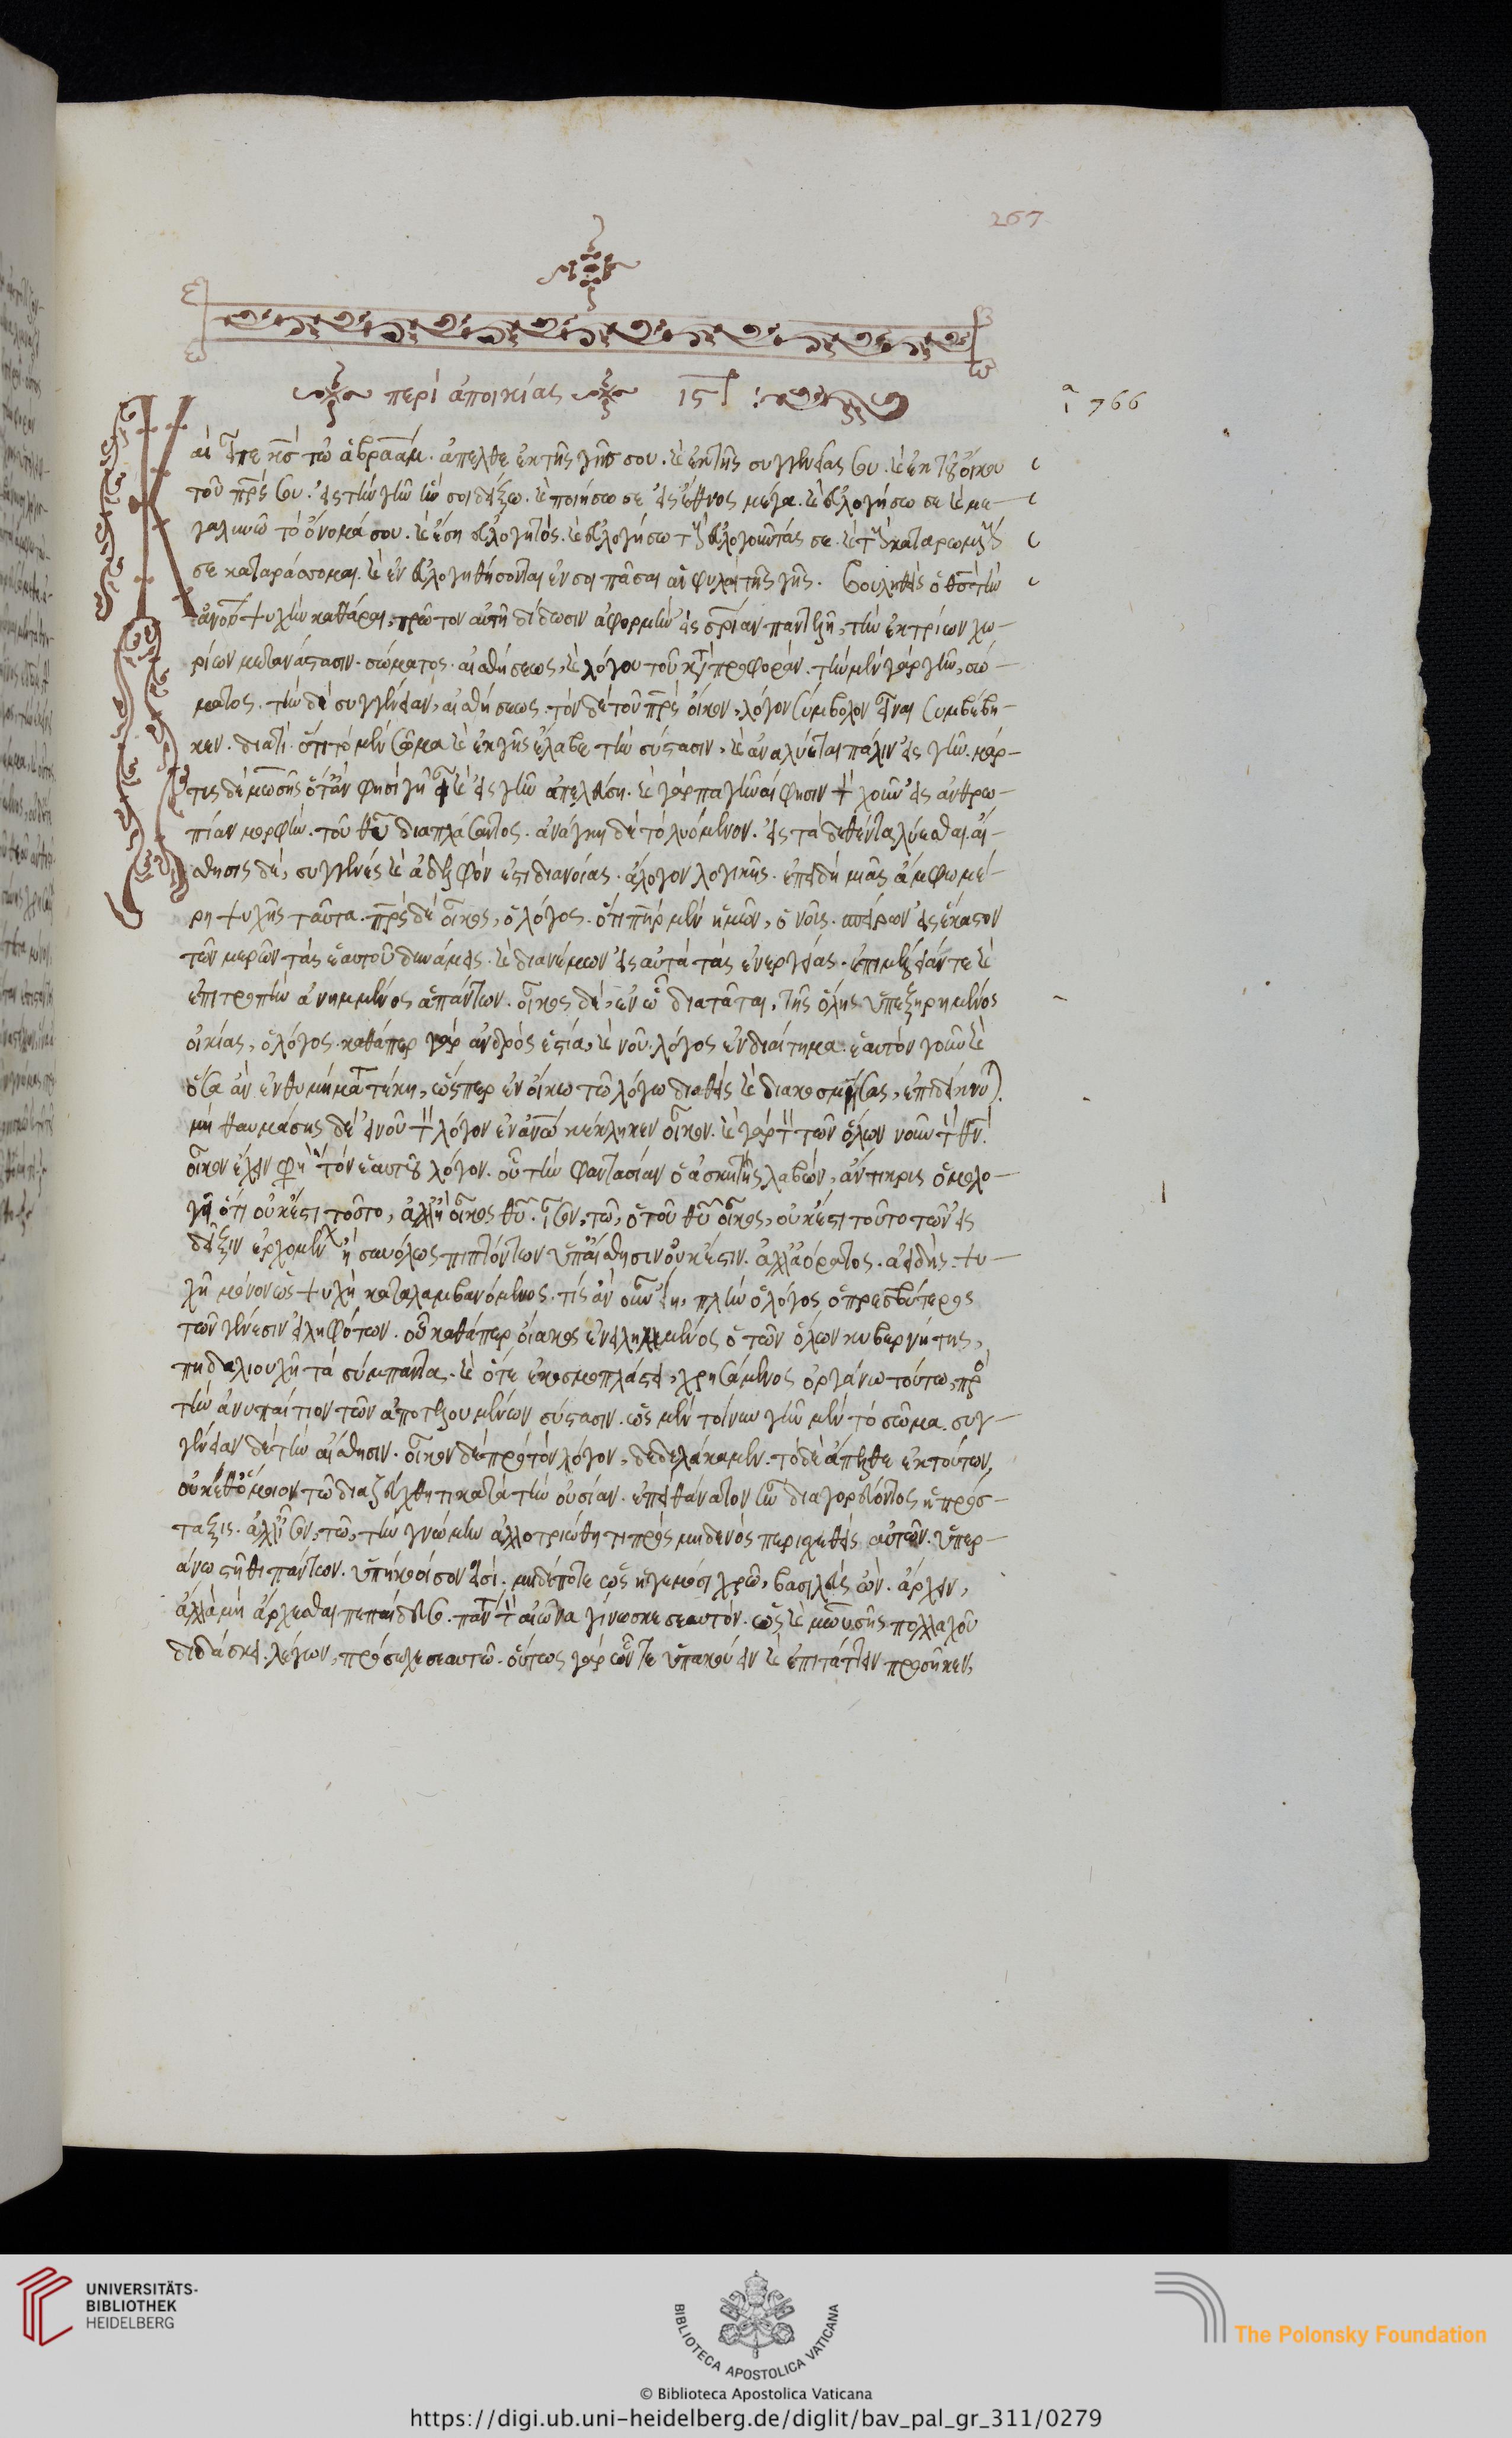 267
περὶ ἀποικίας ιϛ
α 1 766
Καὶ εἶπε κς τῶ ἀβραάμ. ἄπελθε ἐκ τῆς γῆς σου. καὶ ἐκ τῆς συγγενείας σου. καὶ ἐκ τοῦ οἴκου
τοῦ πρς σου. εἰς τὴν γῆν ἣν σοι δείξω. καὶ ποιήσω σε εἰς ἔθνος μέγα. καὶ εὐλογήσω σε καὶ με-
γαλυνῶ τὸ ὄνομά σου. καὶ ἔση εὐλογητός. καὶ εὐλογήσω τοὺς εὐλογοῦντάς σε. καὶ τοὺς καταρωμένους
σε καταράσομαι. καὶ ἐνευλογηθήσονται ἐν σοι πᾶσαι αἱ φυλαὶ τῆς γῆς. βουληθεὶς ὁ θς τὴν
ἀνου ψυχὴν καθάραι, πρῶτον αὐτῆ δίδωσιν ἀφορμὴν εἰς σρίαν παντελῆ, τὴν ἐκ τριῶν χω-
ρίων μετανάστασιν. σώματος. αἰσθήσεως, καὶ λόγου τοῦ κατὰ προφοράν. τὴν μὲν γὰρ γῆν, σώ-
ματος. τὴν δὲ συγγένειαν, αἰσθήσεως. τὸν δὲ τοῦ πρς οἶκον, λόγου σύμβολον εἶναι συμβέβη-
κεν. διατί. ὅτι τὸ μὲν σῶμα καὶ ἐκ γῆς ἔλαβε τὴν σύστασιν, καὶ ἀναλύεται πάλιν εἰς γῆν. μάρ-
τυς δὲ μωσῆς ὅταν φησὶ γῆ εἶ καὶ εἰς γῆν ἀπελεύση. καὶ γὰρ παγῆναί φησιν χοῦν εἰς ἀνθρω-
πίαν μορφὴν. τοῦ θυ διαπλάσαντος. ἀνάγκη δὲ τὸ λυόμενον. εἰς τὰ δεθέντα λύεσθαι. αἴ-
σθησις δὲ, συγγενὲς καὶ ἀδελφόν ἐστι διανοίας. ἄλογον λογικῆς. ἐπειδὴ μιᾶς ἄμφω μέ-
ρη ψυχῆς ταῦτα. πρς δὲ οἶκος, ὁ λόγος. ὅτι πηρ μὲν ἡμῶν, ὁ νοῦς. σπείρων εἰς ἕκαστον
τῶν μερῶν τὰς ἑαυτοῦ δυνάμεις. καὶ διανέμων εἰς αὐτὰ τὰς ἐνεργείας. ἐπιμέλειάν τε καὶ
ἐπιτροπὴν ἀνημμένος ἁπάντων. οἶκος δὲ, ἐν ὧ διαιτᾶται, τῆς ὅλης ὑπεξηρημένος
οἰκίας, ὁ λόγος. καθάπερ γὰρ ἀνδρὸς ἑστία, καὶ νοῦ λόγος ἐνδιαίτημα. ἑαυτὸν γοῦν καὶ
ὅσα ἂν ἐνθυμήματα τέκη, ὥσπερ ἐν οἴκω τῶ λόγω διαθεὶς καὶ διακοσμήσας, ἐπιδείκνυται.
μὴ θαυμάσης δὲ εἰ νοῦ τὸν λόγον ἐν ἀνω κέκληκεν οἶκον. καὶ γὰρ τὸν τῶν ὅλων νοῦν τὸν θν.
οἶκον ἔχειν φησὶ τὸν ἑαυτοῦ λόγον. οὗ τὴν φαντασίαν ὁ ἀσκητὴς λαβὼν, ἄντικρυς ὁμολο-
γεῖ ὅτι οὐκ ἔστι τοῦτο, ἀλλ' ἢ οἶκος θυ. ἴσον, τῶ, ὁ τοῦ θυ οἶκος, οὐκ ἔστι τοῦτο τῶν εἰς
δεῖξιν ἐρχομένων ἢ συνόλως πιπτόντων ὑπ' αἴσθησιν οὐκ ἔστιν. ἀλλ' ἀόρατος. ἀειδής. ψυ-
χῆ μόνον ὡς ψυχὴ καταλαμβανόμενος. τίς ἂν οὖν εἴη, πλὴν ὁ λόγος ὁ πρεσβύτερος
τῶν γένεσιν εἰληφότων. οὗ καθάπερ οἴακος ἐνειλημμένος ὁ τῶν ὅλων κυβερνήτης,
πηδαλιουχεῖ τὰ σύμπαντα. καὶ ὅτε ἐκοσμοπλάστει, χρησάμενος ὀργάνω τούτω, πρὸς
τὴν ἀνυπαίτιον τῶν ἀποτελουμένων σύστασιν. ὡς μὲν τοίνυν γῆν μὲν τὸ σῶμα. συγ-
γένειαν δὲ τὴν αἴσθησιν. οἶκον δὲ πρς τὸν λόγον, δεδηλώκαμεν. τὸ δὲ ἄπελθε ἐκ τούτων,
οὐκ ἔσθ' ὅμοιον τῶ διαζεύχθητι κατὰ τὴν οὐσίαν. ἐπεὶ θάνατον ἦν διαγορεύοντος ἡ πρόσ-
ταξις. ἀλλ' ἴσον, τῶ, τὴν γνώμην ἀλλοτριώθητι πρὸς μηδενὸς περισχεθεὶς αὐτῶν. ὑπερ-
άνω στῆθι πάντων. ὑπήκοοί σου εἰσί. μηδέποτε ὡς ἡγεμόσι χρῶ, βασιλεὺς ὢν. ἄρχειν,
ἀλλὰ μὴ ἄρχεσθαι πεπαίδευσο. πάντα τὸν αἰῶνα γίνωσκε σεαυτόν. ὡς καὶ μωυσῆς πολλαχοῦ
διδάσκει. λέγων, πρόσεχε σεαυτῶ. οὕτως γὰρ ὧν τε ὑπακούειν καὶ ἐπιτάττειν προσῆκεν,
UNIVERSITÄTS-
BIBLIOTHEK
HEIDELBERG
BIBLIOTECA APOSTOLICA VATICANA
The Polonsky Foundation
© Biblioteca Apostolica Vaticana
https://digi.ub.uni-heidelberg.de/diglit/bav_pal_gr_311/0279